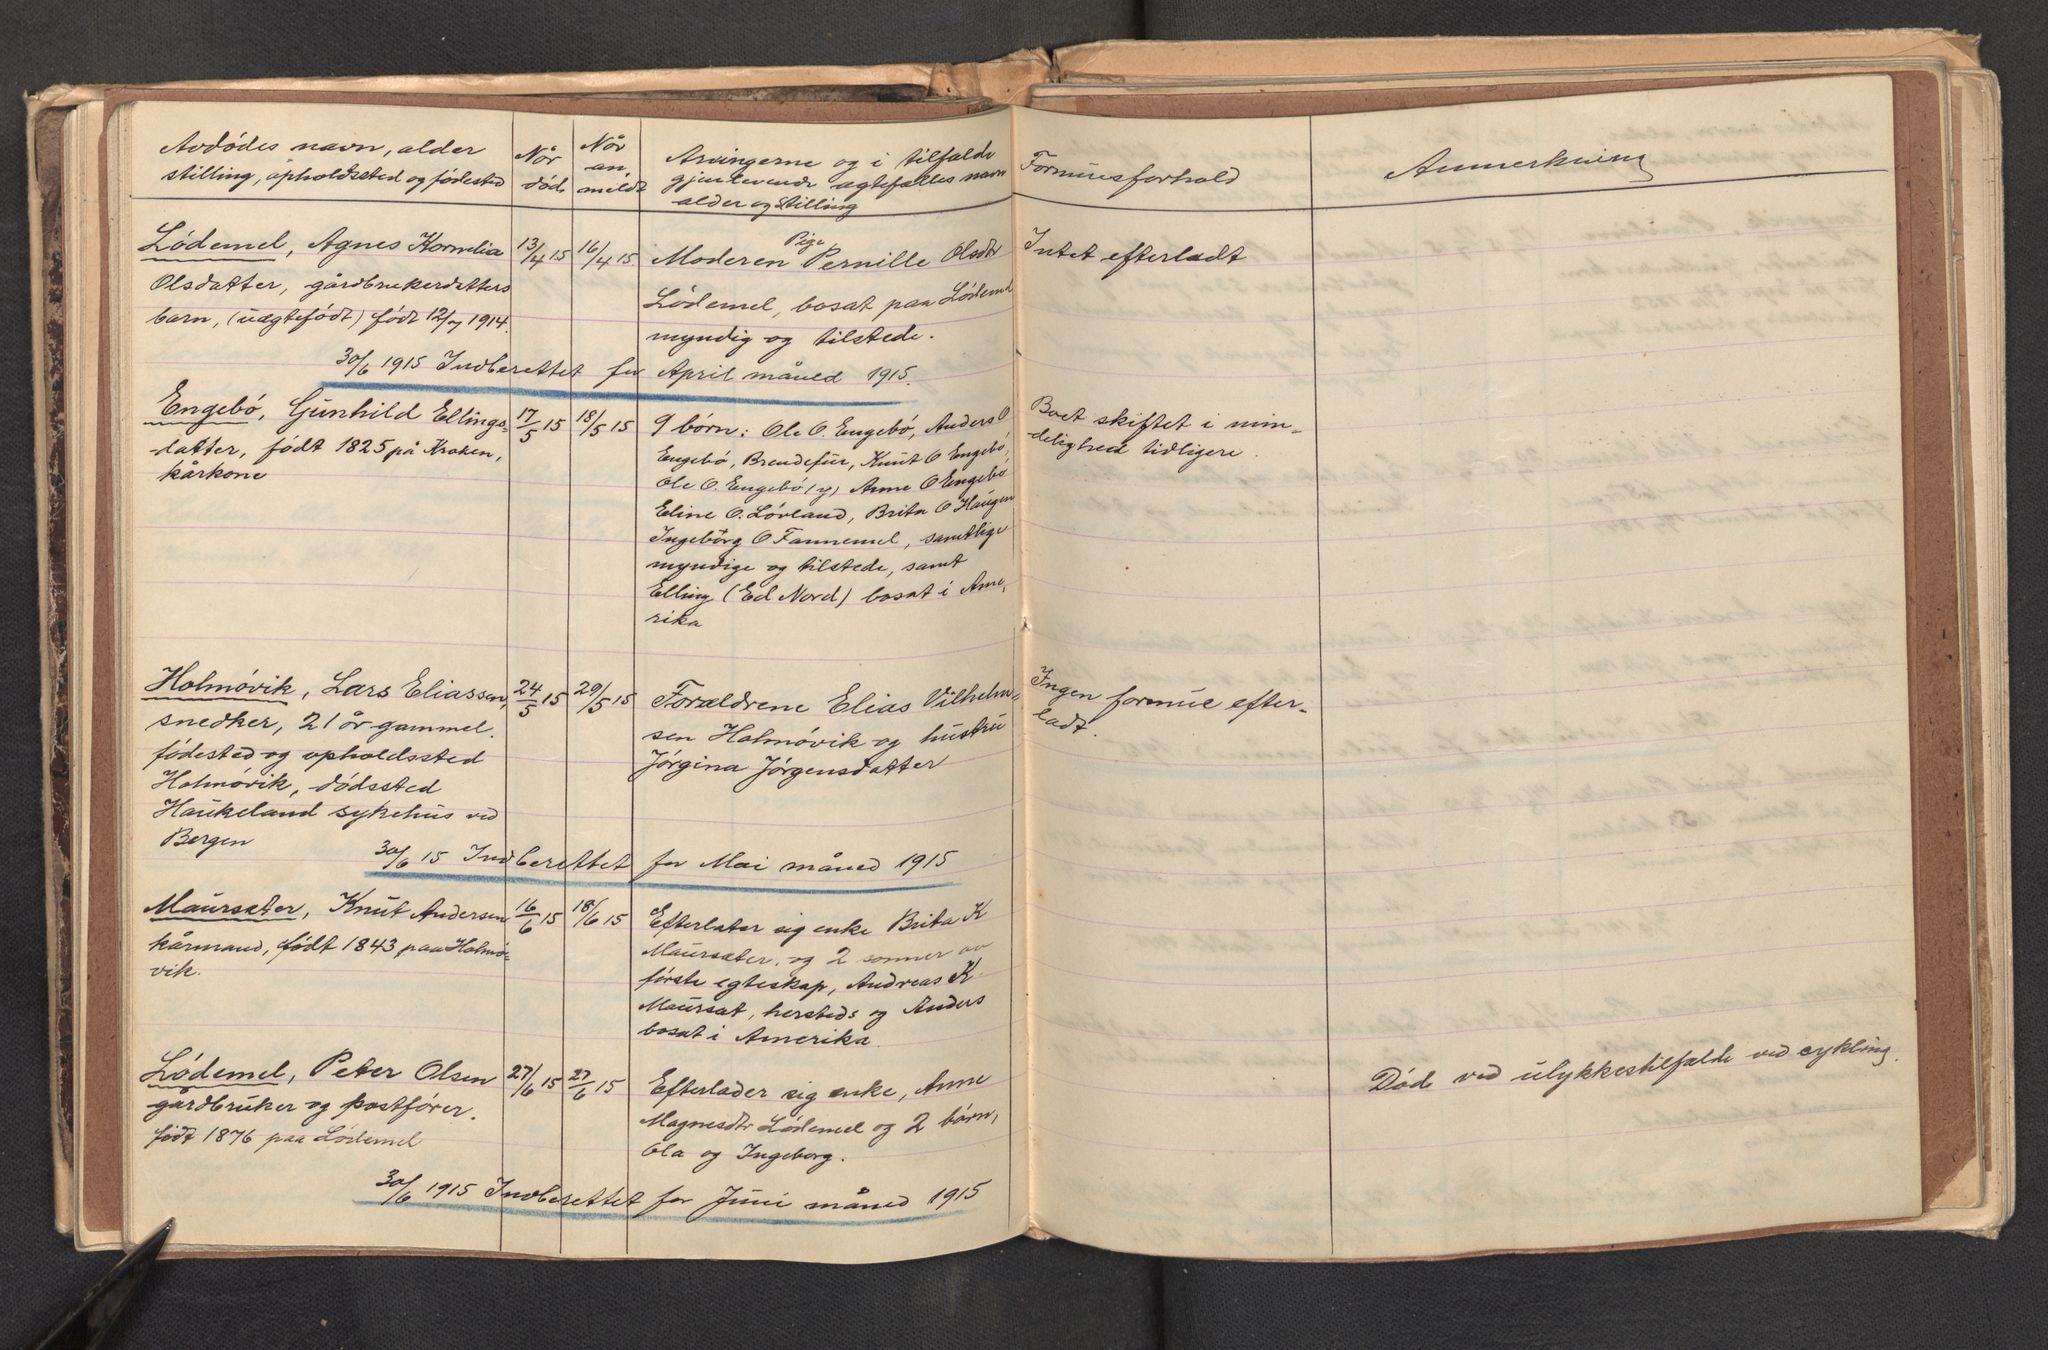 Avdødes navn, alder
stilling, opholdssted og fødested
Når
død
Når
an
meldt
Arvingerne og i tilfælde
gjenlevende ægtefælles navn
alder og stilling
Formuesforhold
Anmerkning
Lødemel, Agnes Kornelia
Olsdatter, gårdbrukerdatters
barn, (uægtefødt) født 12/7 1914.
13/4 15
16/4 15.
Pige
Moderen Pernille Olsdtr
Lødemel, bosat paa Lødemel
myndig og tilstede.
Intet efterladt
30/6 1915 Indberettet for April måned 1915.
Engebø, Gunhild Ellings-
datter, født 1825 på Kroken,
kårkone
17/5 15
18/5 15
9 børn: Ole O. Engebø, Anders O
Engebø, Brendefur, Knut O Engebø,
Ole O. Engebø (y) Anne O Engebø
Eline O. Løvland, Brita O Haugen
Ingebörg O Fannemel, samtlige
myndige og tilstede, samt
Elling (Ed Nord) bosat i Ame,
rika
Boet skiftet i min-
delighed tidligere.
Holmøvik, Lars Eliassen,
snedker, 21 år gammel.
fødested og opholdssted
Holmøvik, dødssted
Haukeland sykehus ved
Bergen
24/5 15
29/5 15
Forældrene Elias Vilhelm-
sen Holmøvik og hustru
Jørgina Jørgensdatter
Ingen formue efter-
ladt.
30/6 15 Indberettet for Mai måned 1915
Maursæter, Knut Andersen
kårmand, født 1843 paa Holmø-
vik.
16/6 15
18/6 15
Efterlater sig enke Brita K
Maursæter, og 2 sønner av
første egteskap, Andreas K.
Maursæt, hersteds og Anders
bosat i Amerika
Lødemel, Peter Olsen
gårdbruker og postfører.
født 1876 paa Lødemel
27/6 15
27/6 15
Efterlader sig enke, Anne
Magnesdtr Lødemel og 2 børn,
Ola og Ingeborg.
Død ved ulykkestilfælde ved cykling.
30/6 1915 Indberettet for Juni måned 1915